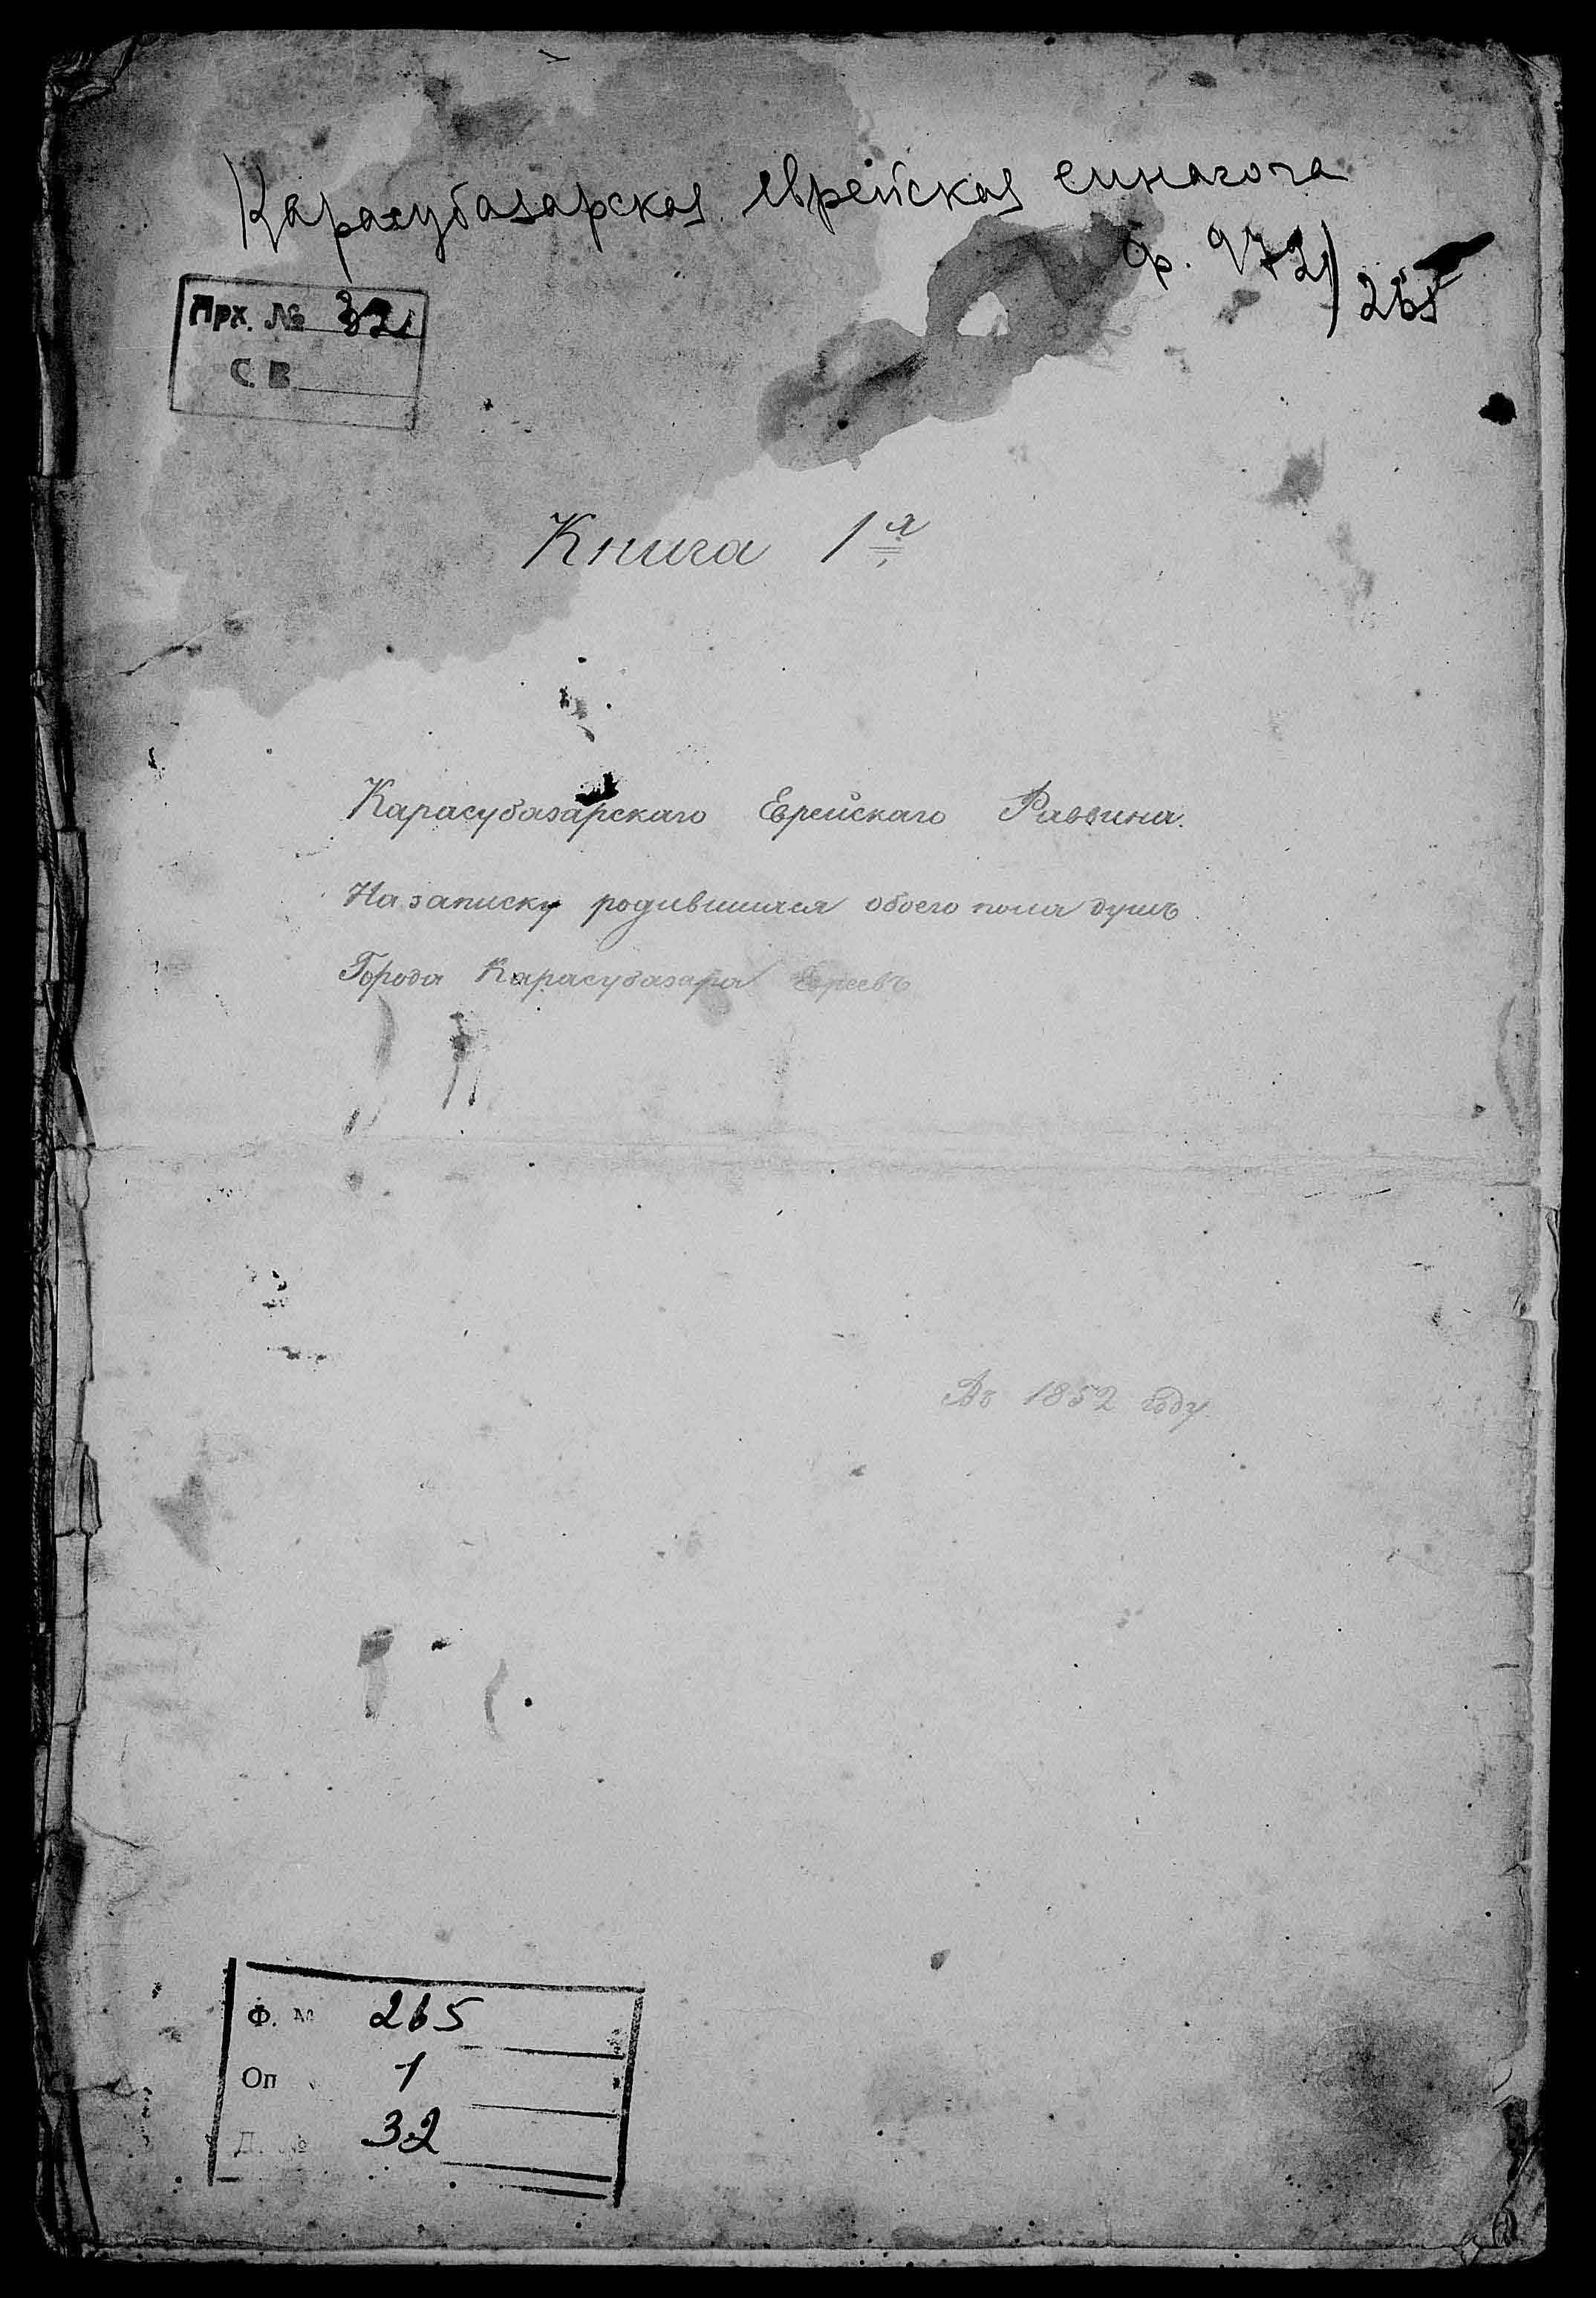 Карасубазарская еврейская синагога
Ф. 972 / 265
Арх. № 32
С. В
Книга 1я
Карасубазарскаго Еврейскаго Раввина.
На записку родившихся обоего пола душъ
Города Карасубазара Евреевъ
Въ 1852 году.
Ф. № 265
Оп 1
Д. № 32